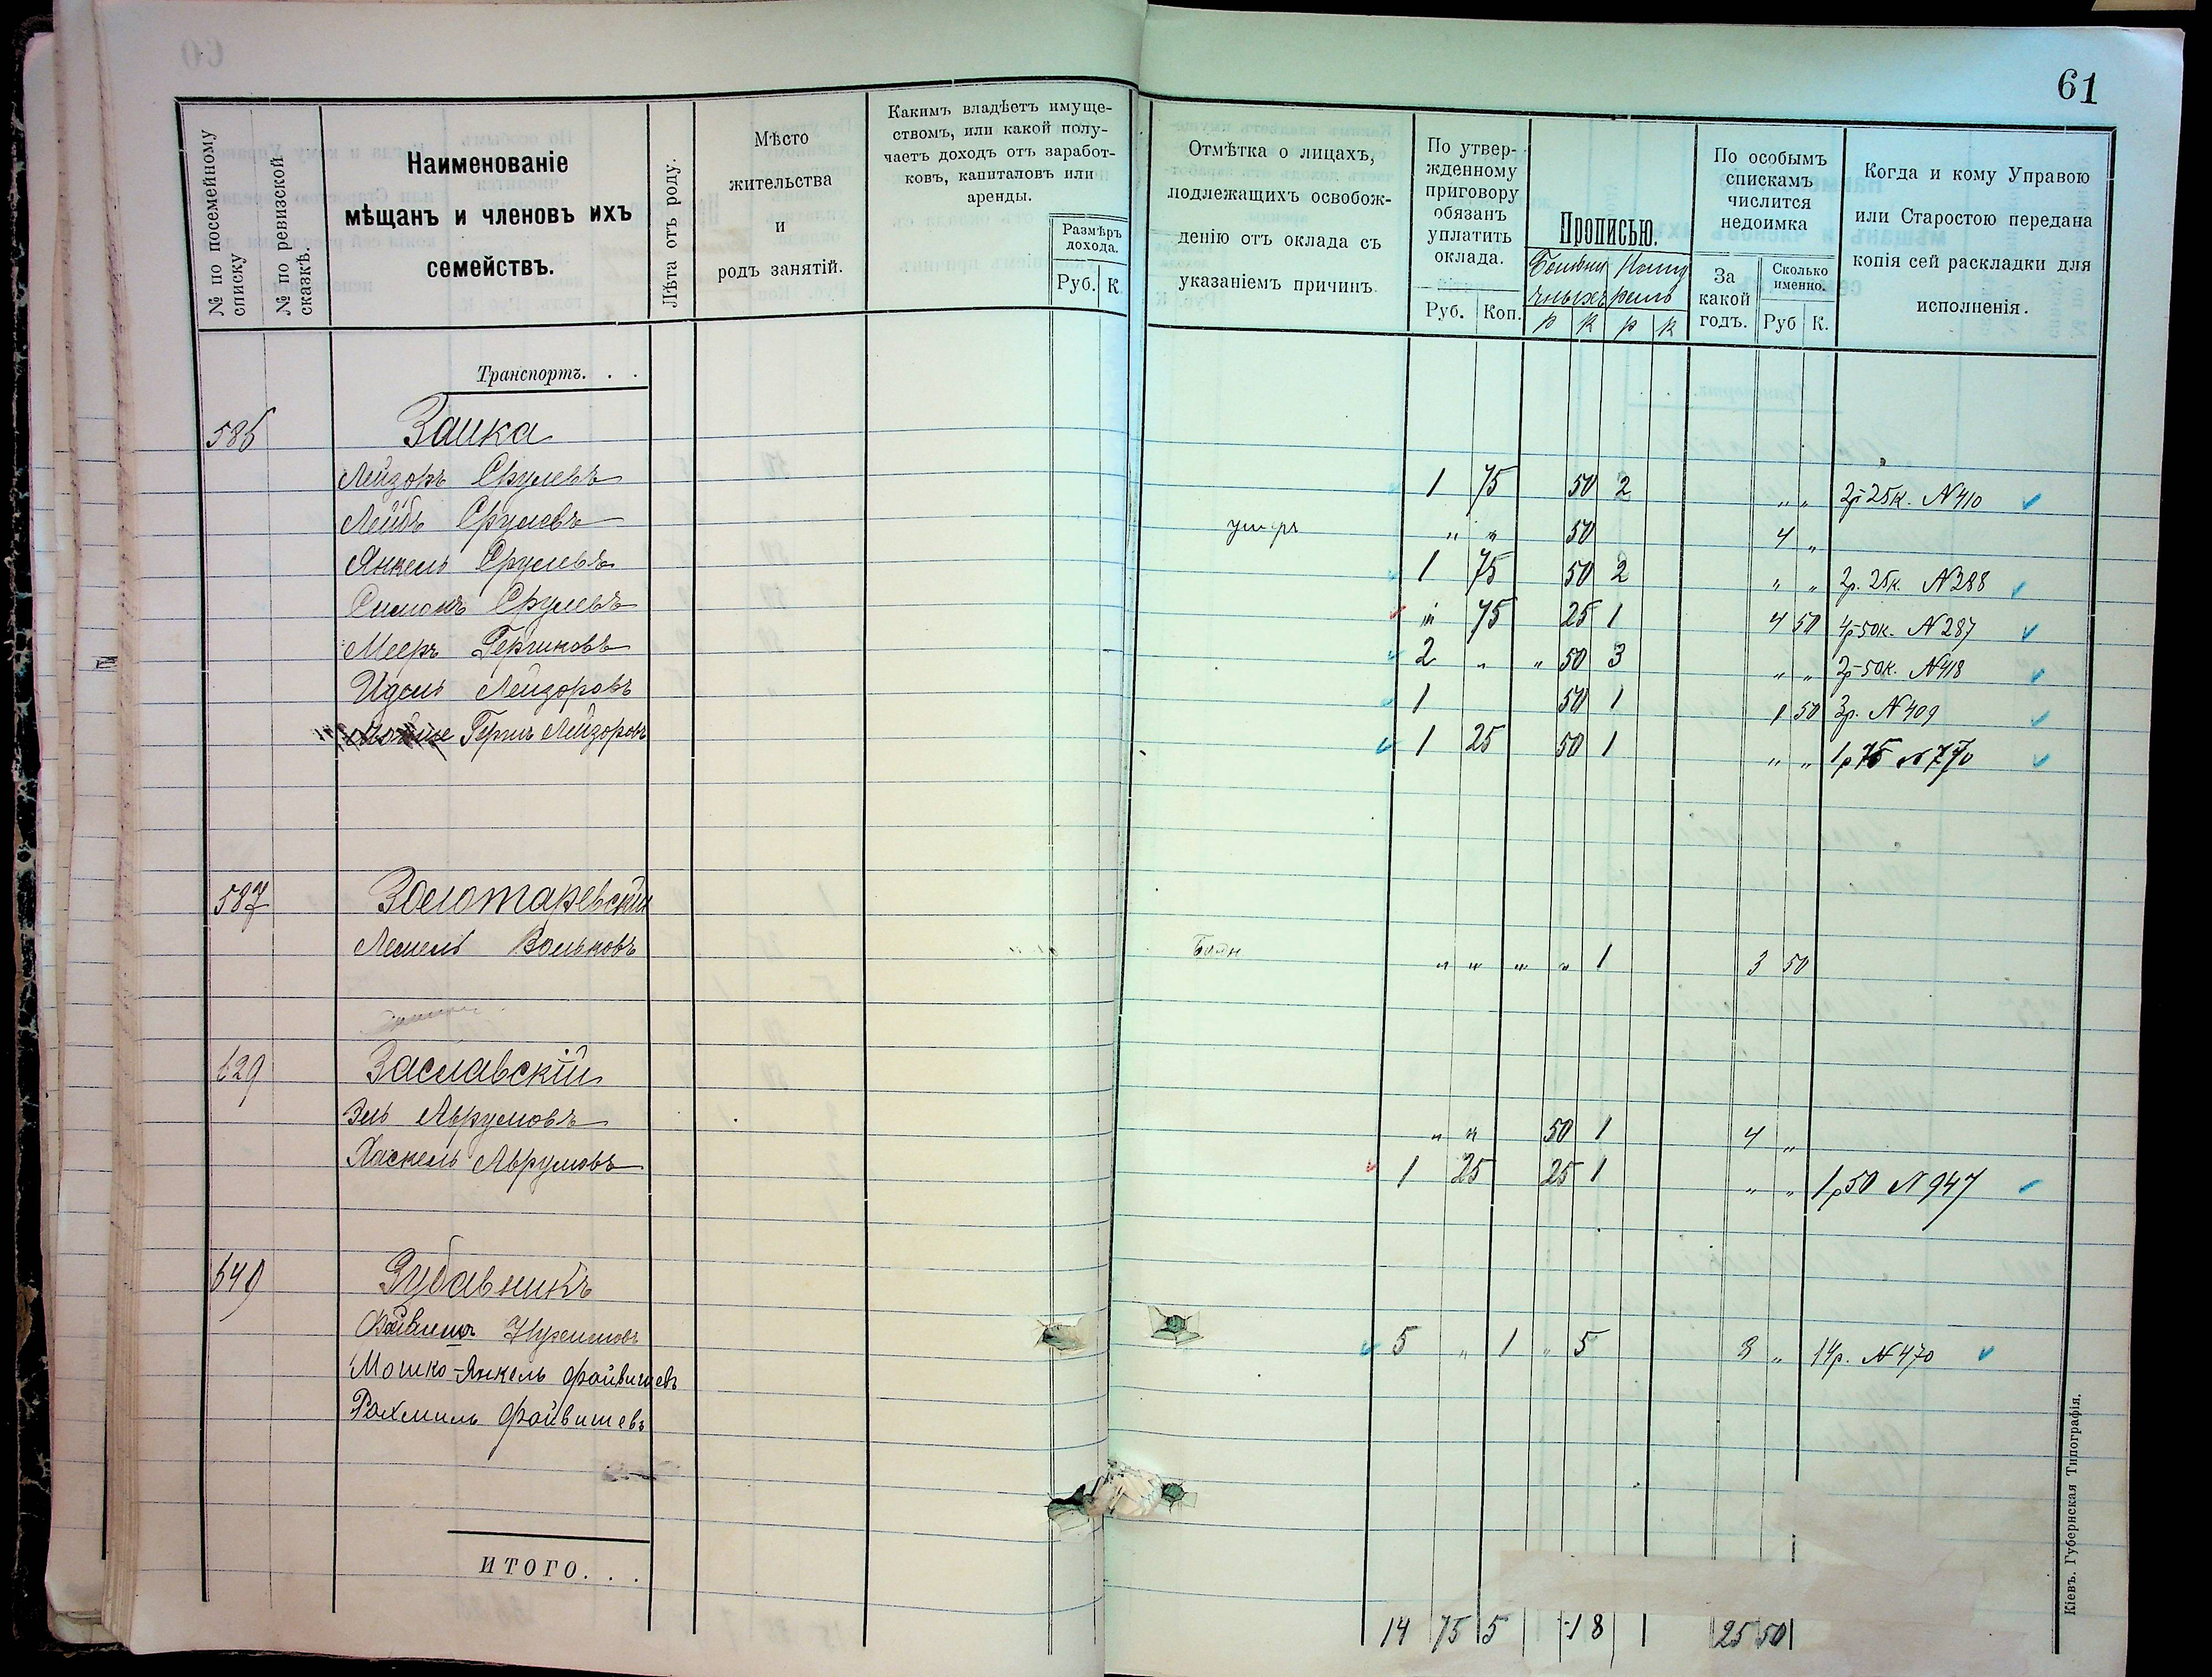 61
№ по посемейному списку
№ по ревизской сказкѣ.
Наименованіе
мѣщанъ и членовъ ихъ
семействъ.
Лѣта отъ роду.
Мѣсто
жительства
и
родъ занятій.
Какимъ владѣетъ имуще-
ствомъ, или какой полу-
чаетъ доходъ отъ заработ-
ковъ, капиталовъ или
аренды.
Размѣръ
дохода.
Руб. К.
Отмѣтка о лицахъ,
подлежащихъ освобож-
денію отъ оклада съ
указаніемъ причинъ.
По утвер-
жденному
приговору
обязанъ
уплатить
оклада.
Руб. Коп.
Прописью.
р к р к
По особымъ
спискамъ
числится
недоимка
За
какой
годъ.
Сколько
именно.
Руб К.
Когда и кому Управою
или Старостою передана
копія сей раскладки для
исполненія.
Транспортъ. . .
586 Заика
Лейзоръ Срулевъ 1 75 50 2 „ „ 2р 25к. № 410
Лейбъ Срулевъ умеръ „ „ 50 4 „
Янкель Срулевъ 1 75 50 2 „ „ 2р. 25к. № 388
Симонъ Срулевъ „ 75 25 1 4 50 4р 50к. № 287
Мееръ Гершковъ 2 „ „ 50 3 „ „ 2р 50к. № 418
Идель Лейзоровъ 1 50 1 1 50 3р. № 409
Гершъ Лейзоровъ 1 25 50 1 „ „ 1р 75 № 770
587 Золотаревскій
Лемель Вольковъ „ „ „ „ 1 3 50
629 Заславскій
Эль Аврумовъ „ „ 50 1 4 „
Хаскель Аврумовъ 1 25 25 1 „ „ 1р 50 № 947
649 Зубавникъ
Файвишъ Нухимовъ 5 „ 1 „ 5 8 „ 14р. № 470
Мошко-Янкель Файвишевъ
Рахмиль Файвишевъ
ИТОГО. . .
14 75 5 18 25 50
Кіевъ. Губернская Типографія.